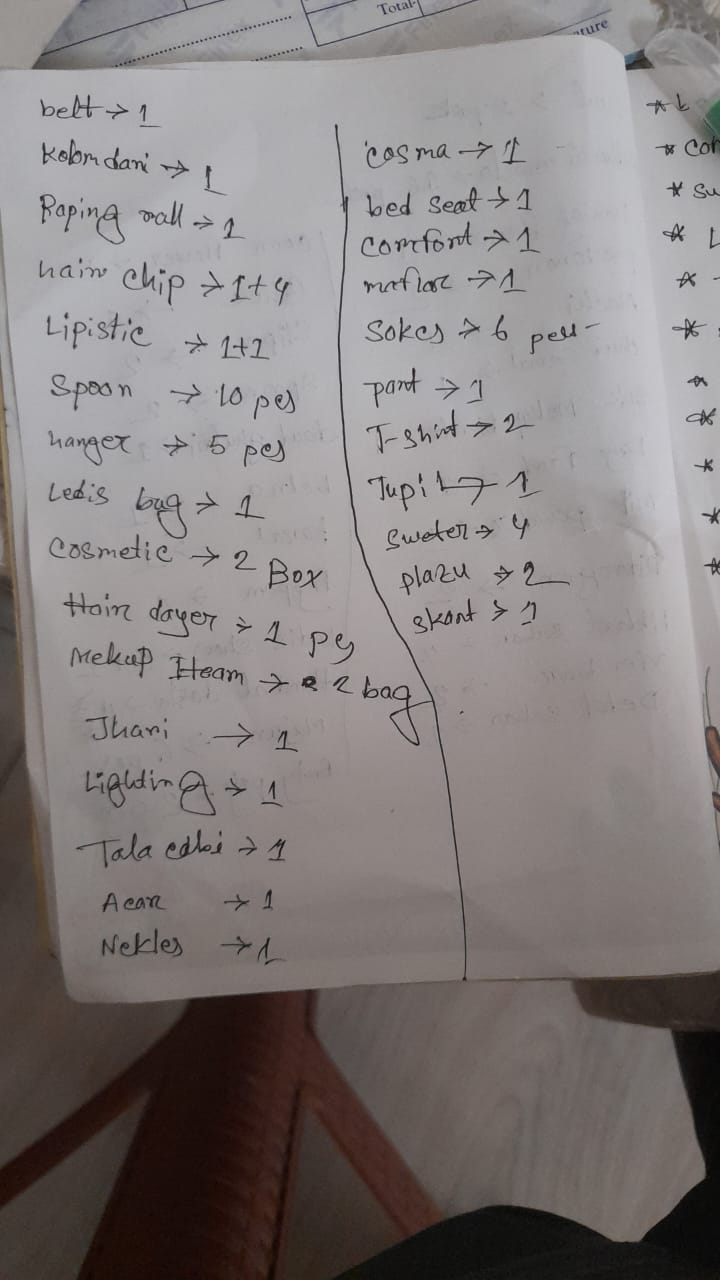 Total
ture
belt → 1
Kolom dani → 1
Raping mall → 1
hair chip → 1+4
Lipistic → 1+1
Spoon → 10 pcs
hanger → 5 pcs
Ledis bag → 1
Cosmetic → 2 Box
Hair dayer → 1 pcs
Mekup Iteam → 2 bag
Jhari → 1
Lighting → 1
Tala cabi → 1
Acar → 1
Nekles → 1
cosma → 1
bed seat → 1
comfort → 1
maflar → 1
Sokes → 6 pell
pant → 1
T-shirt → 2
Tupi → 1
Sweter → 4
plazu → 2
skart → 1